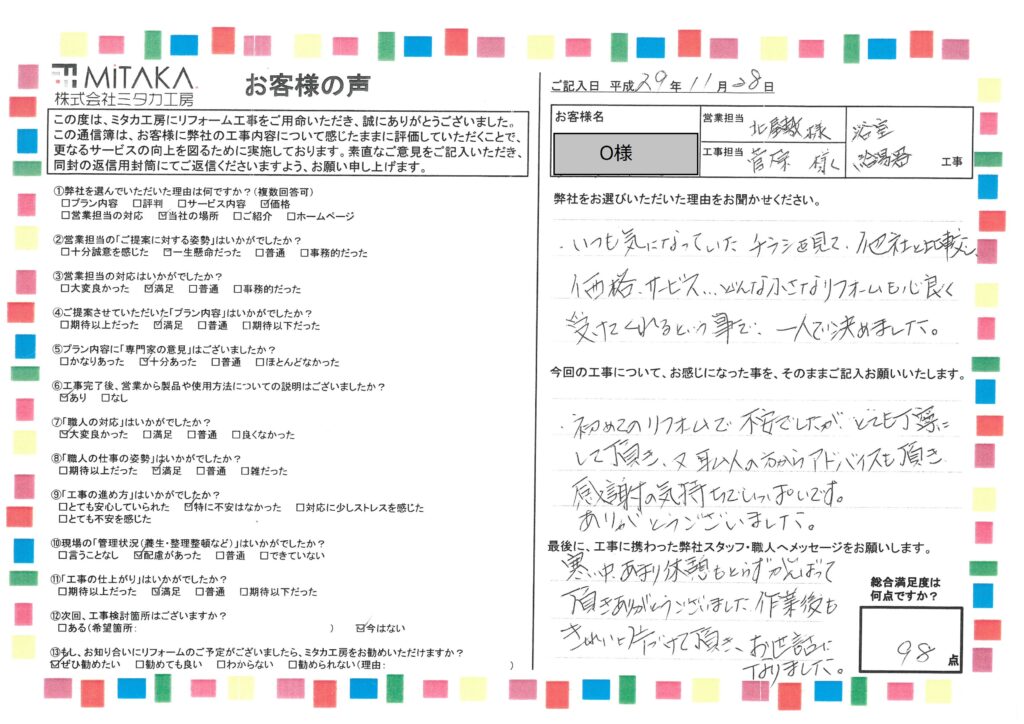 MiTAKA
株式会社ミタカ工房
お客様の声
この度は、ミタカ工房にリフォーム工事をご用命いただき、誠にありがとうございました。
この通信簿は、お客様に弊社の工事内容について感じたままに評価していただくことで、
更なるサービスの向上を図るために実施しております。素直なご意見をご記入いただき、
同封の返信用封筒にてご返信くださいますよう、お願い申し上げます。
①弊社を選んでいただいた理由は何ですか?(複数回答可)
□プラン内容 □評判 □サービス内容 ☑価格
□営業担当の対応 ☑当社の場所 □ご紹介 □ホームページ
②営業担当の「ご提案に対する姿勢」はいかがでしたか?
□十分誠意を感じた ☑一生懸命だった □普通 □事務的だった
③営業担当の対応はいかがでしたか?
□大変良かった ☑満足 □普通 □事務的だった
④ご提案させていただいた「プラン内容」はいかがでしたか?
□期待以上だった ☑満足 □普通 □期待以下だった
⑤プラン内容に「専門家の意見」はございましたか?
□かなりあった ☑十分あった □普通 □ほとんどなかった
⑥工事完了後、営業から製品や使用方法についての説明はございましたか?
☑あり □なし
⑦「職人の対応」はいかがでしたか?
☑大変良かった □満足 □普通 □良くなかった
⑧「職人の仕事の姿勢」はいかがでしたか?
□期待以上だった ☑満足 □普通 □雑だった
⑨「工事の進め方」はいかがでしたか?
□とても安心していられた ☑特に不安はなかった □対応に少しストレスを感じた
□とても不安を感じた
⑩現場の「管理状況(養生・整理整頓など)」はいかがでしたか?
□言うことなし ☑配慮があった □普通 □できていない
⑪「工事の仕上がり」はいかがでしたか?
□期待以上だった ☑満足 □普通 □期待以下だった
⑫次回、工事検討箇所はございますか?
□ある(希望箇所: ) ☑今はない
⑬もし、お知り合いにリフォームのご予定がございましたら、ミタカ工房をお勧めいただけますか?
☑ぜひ勧めたい □勧めても良い □わからない □勧められない(理由: )
ご記入日 平成29年11月28日
お客様名
O様
営業担当 様
工事担当 菅原 様
浴室
給湯器 工事
弊社をお選びいただいた理由をお聞かせください。
・いつも気になっていたチラシを見て、他社と比較し、
価格、サービス…どんな小さなリフォームも心良く
受けてくれるという事で、一人で決めました。
今回の工事について、お感じになった事を、そのままご記入お願いいたします。
・初めてのリフォームで不安でしたが、とても丁寧に
して頂き、又職人の方からアドバイスも頂き
感謝の気持ちでいっぱいです。
ありがとうございました。
最後に、工事に携わった弊社スタッフ・職人へメッセージをお願いします。
寒い中、あまり休憩もとらずがんばって
頂きありがとうございました。作業後も
きれいに片づけて頂き、お世話に
なりました。
総合満足度は
何点ですか?
98点